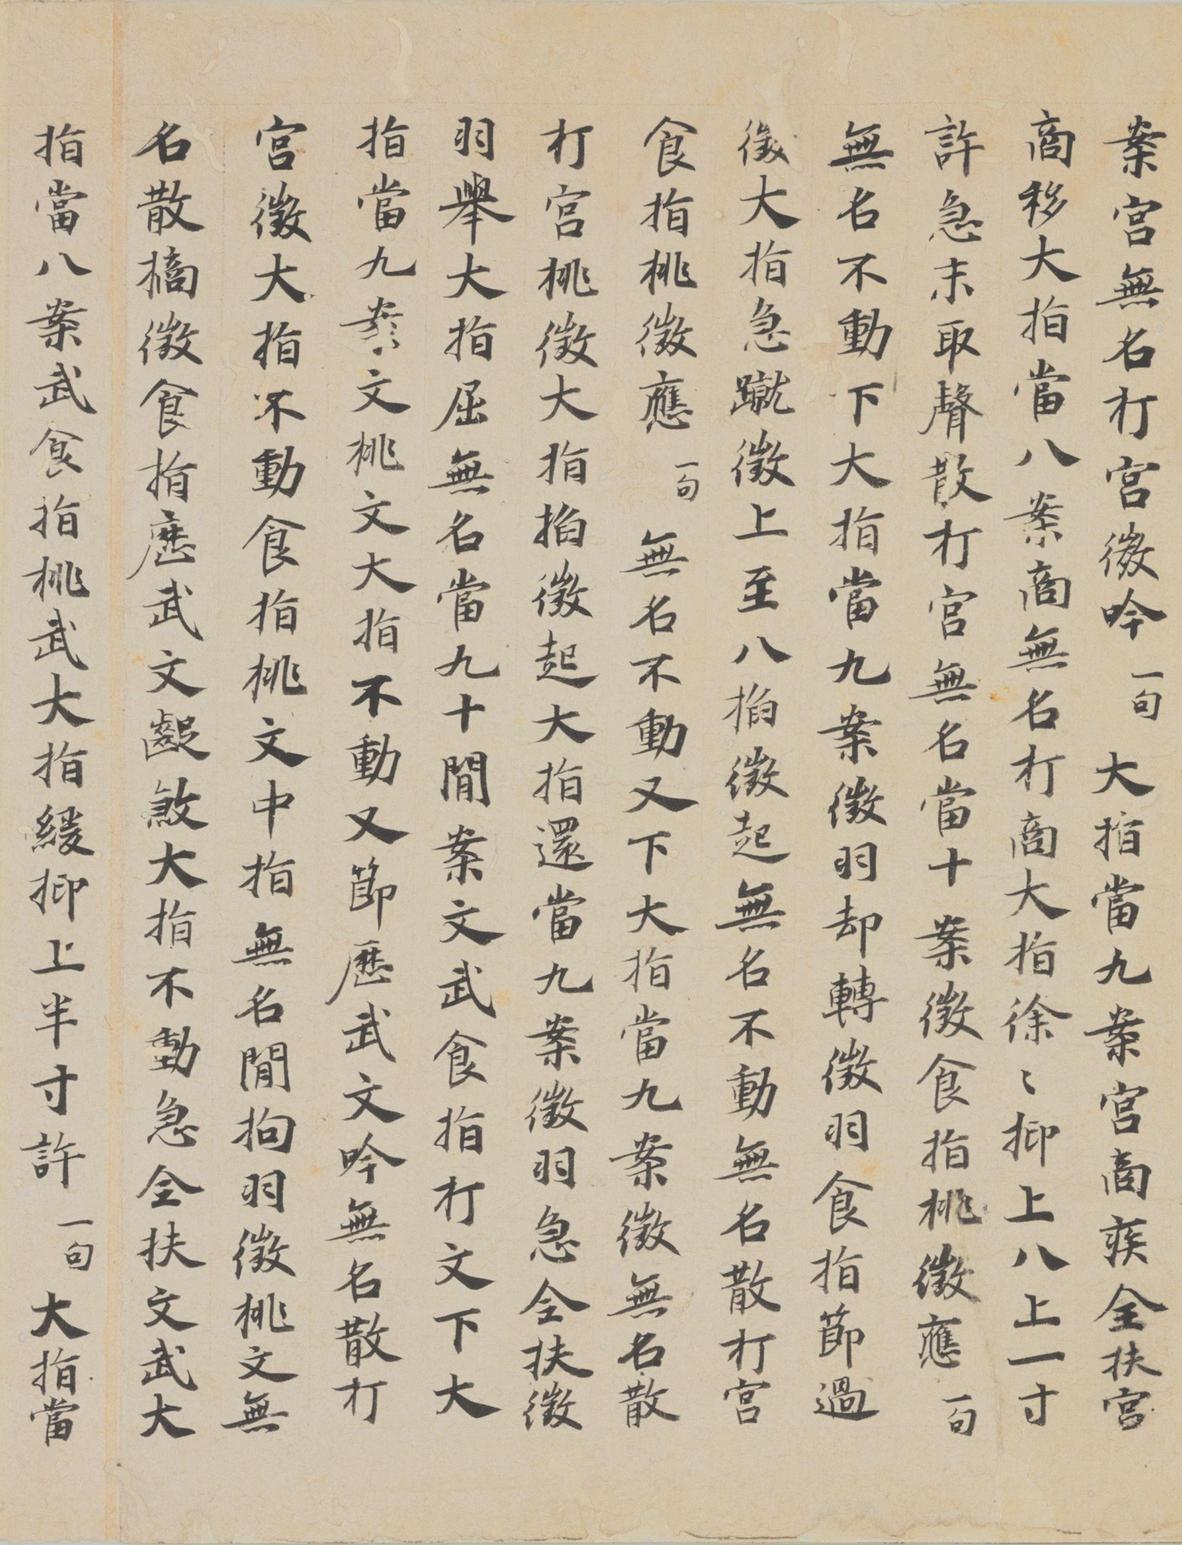 案宮無名打宮徵吟一句大指當九案宮商疾全扶宮
商移大指當八案商無名打商大指徐〻抑上八上一寸
許急末取聲散打宮無名當十案徵食指挑徵應一句
無名不動下大指當九案徵羽却轉徵羽食指節過
徵大指急蹴徵上至八掐徵起無名不動無名散打宮
食指挑徵應一句無名不動又下大指當九案徵無名散
打宮挑徵大指掐徵起大指還當九案徵羽急全扶徵
羽舉大指屈無名當九十間案文武食指打文下大
指當九案文挑文大指不動又節歷武文吟無名散打
宮徵大指不動食指挑文中指無名間拘羽徵挑文無
名散擿徵食指歷武文齪煞大指不動急全扶文武大
指當八案武食指挑武大指緩抑上半寸許一句大指當